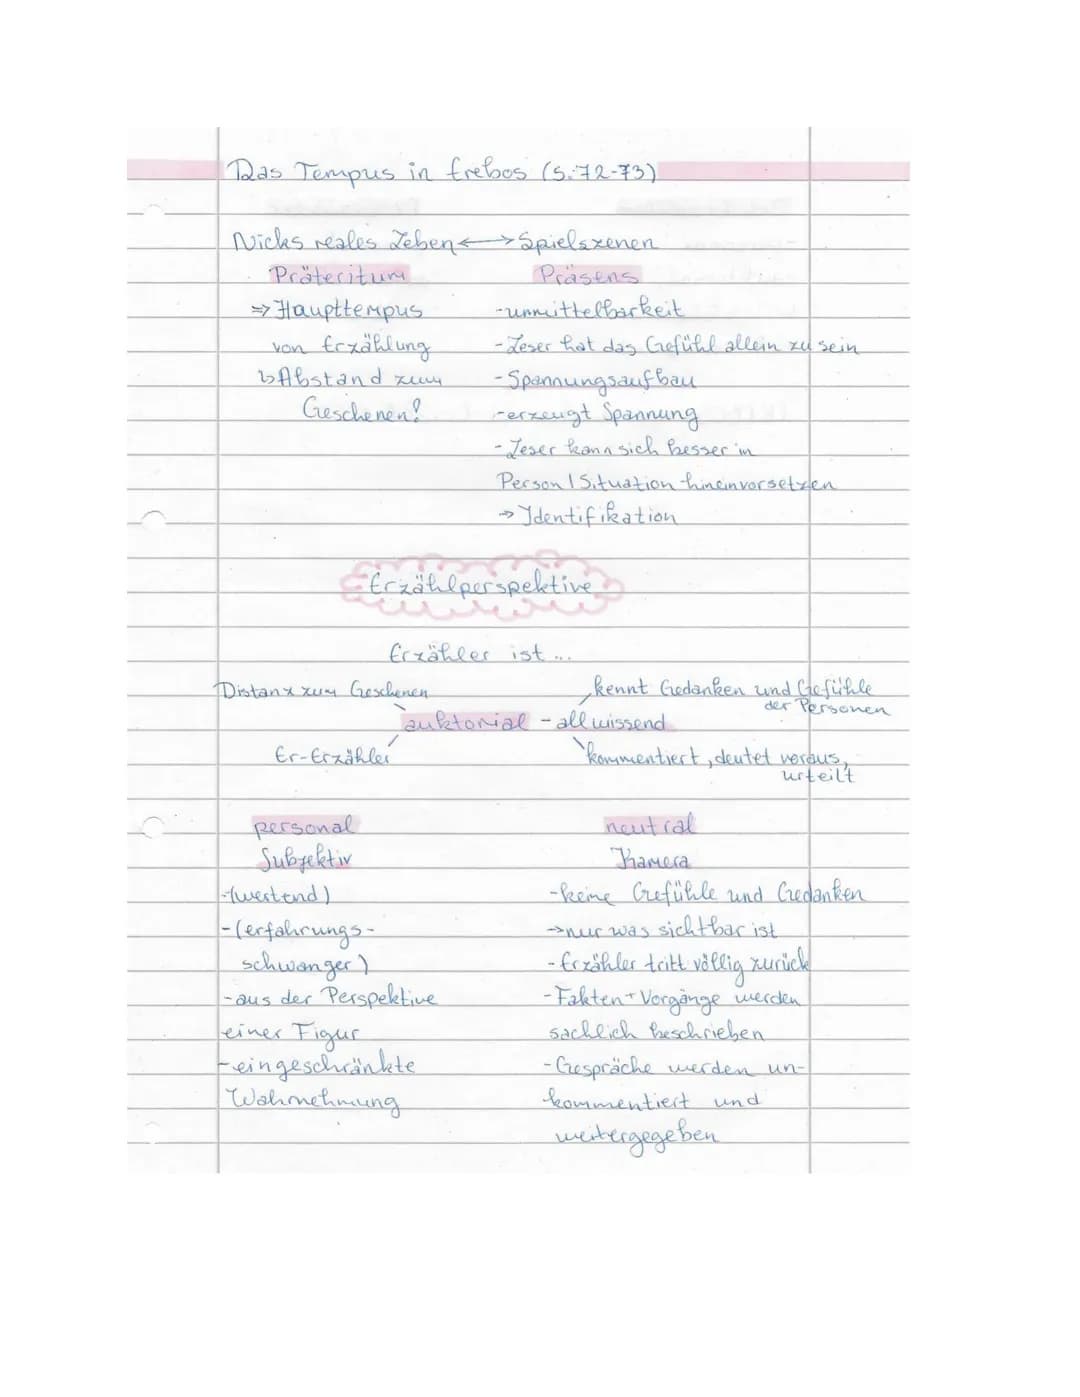 Das Tempus in Erebos (S. 72-73)
Nicks reales Leben ↔ Spielszenen
Präteritum Präsens
⇒ Haupttempus -unmittelbarkeit
von Erzählung - Leser hat das Gefühl allein zu sein
↳ Abstand zum - Spannungsaufbau
Geschenen? -erzeugt Spannung
- Leser kann sich besser in
Person / Situation hineinvorsetzen
→ Identifikation
Erzählperspektive
Erzähler ist ...
Distanz zum Geschenen kennt Gedanken und Gefühle
der Personen
auktorial - allwissend
Er-Erzähler kommentiert, deutet voraus,
urteilt
personal neutral
Subjektiv Kamera
-(wertend) -keine Gefühle und Gedanken
-(erfahrungs- →nur was sichtbar ist
schwanger) - Erzähler tritt völlig zurück
-aus der Perspektive - Fakten + Vorgänge werden
einer Figur sachlich beschrieben
-eingeschränkte - Gespräche werden un-
Wahrnehmung kommentiert und
weitergegeben